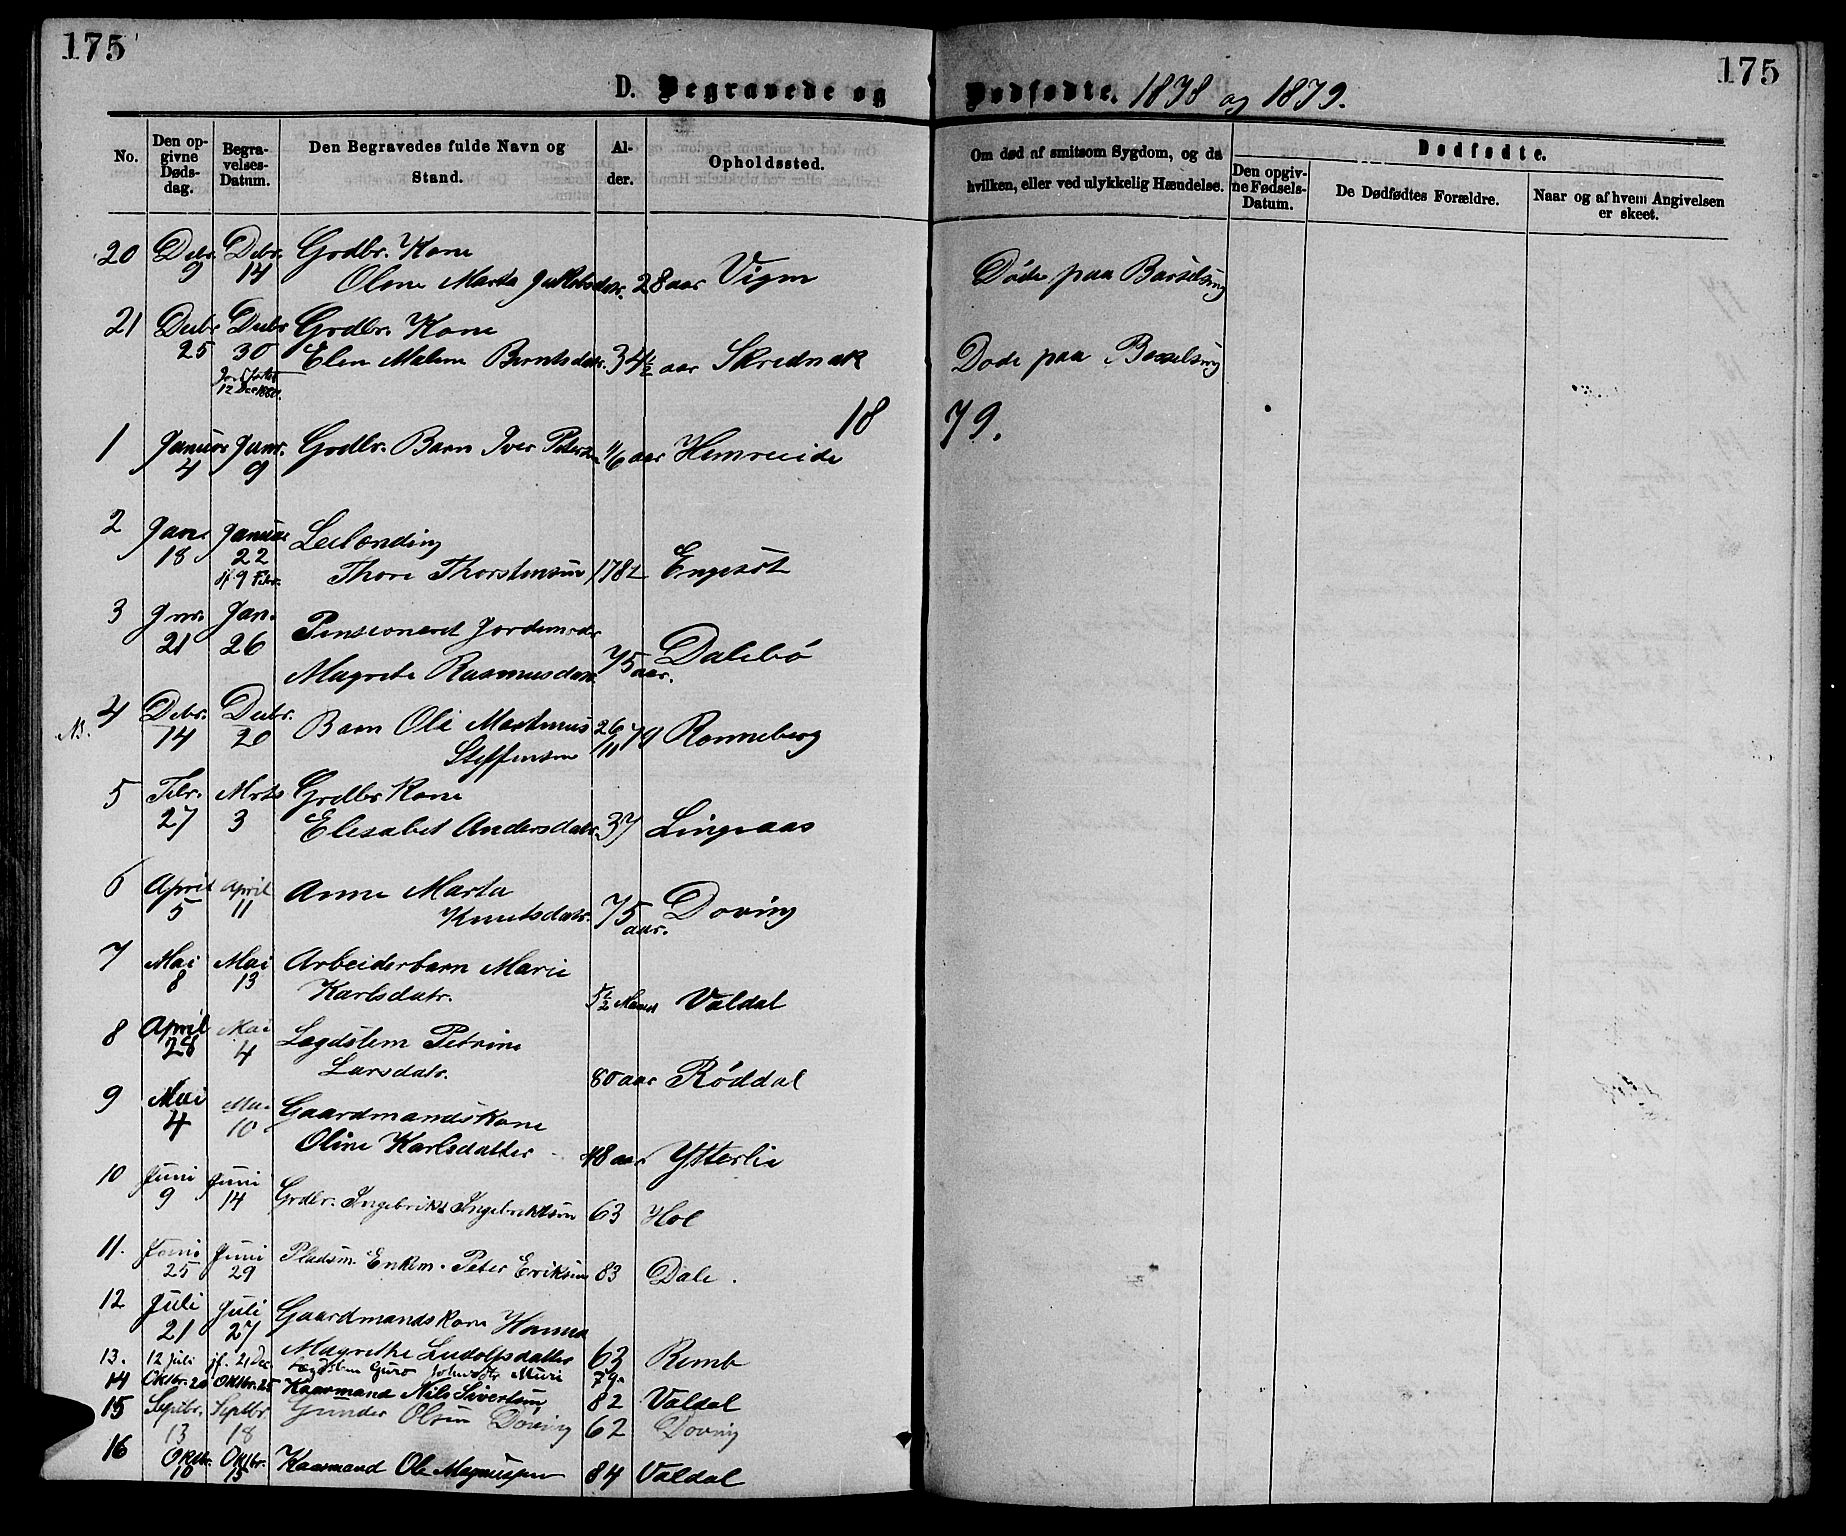 175
175
D. Begravede og Dødfødte. 1878 og 1879.
No.
Den opgivne Dødsdag.
Begravelses-Datum.
Den Begravedes fulde Navn og Stand.
Alder.
Opholdssted.
Om død af smitsom Sygdom, og da hvilken, eller ved ulykkelig Hændelse.
Dødfødte.
Den opgivne Fødsels-Datum.
De Dødfødtes Forældre.
Naar og af hvem Angivelsen er skeet.
20 Debr. 9 Debr. 14 Grdbr. Kone
Marta 28 aar Døde paa Barselseng
21 Decbr 25 Decbr 30 Grdbr. Kone
Elen Berntsdatr. 34½ aar Døde paa Barselseng
1879.
1 Januar 4 Janr. 9 Grdbr. Barn Iver Petersen aar
2 Jan. 18 Januar 22
jf. 9 Febr.
Thore Thorstensen
3 Jnr. 21 Jan. 26
Magrete Rasmusdatr. 75 aar. Dalebø
4 Debr. 14 Decbr. 20 Barn Ole Martinus 26/11 79 Ronneberg
Steffensen
5 Febr. 27 Mrts 3 Grdbr Kone
Elisabet Andersdatr. 37 Lingaas
6 April 5 April 11 Anne Marta
Knutsdatr. 75 aar. Døving
7 Mai 8 Mai 13 Arbeiderbarn Marie
Karlsdatr. 5½ Maaned Valdal
8 April 28 Mai 4 Lægdslem Petrine
Larsdatr. 80 aar Røddal
9 Mai 4 Mai 10 Gaardmandskone
Oline Karlsdatter 48 aar Ytterlie
10 Juni 9 Juni 14 Grdbr. Ingebrikt Ingebriktsen 63 Hol
11. Juni 25 Juni 29 Pladsm. Enkem. Peter Eriksen 83 Dale.
12 Juli 21 Juli 27 Gaardmandskone Hanna
Magrethe Ludolfsdatter 63 Remb
13. 12 Juli jf. 21 Dec Lægdslem Guro Muri 79
14 Oktbr. 20 Oktbr. 25 Kaarmand Nils Sivertsen 82 Valdal
15 Septbr. 13 Septbr 18 Gunder Olsen Døving 62 Døving
16 Oktbr. 10 Oktbr. 15 Kaarmand Ole Magnussen 84 Valdal